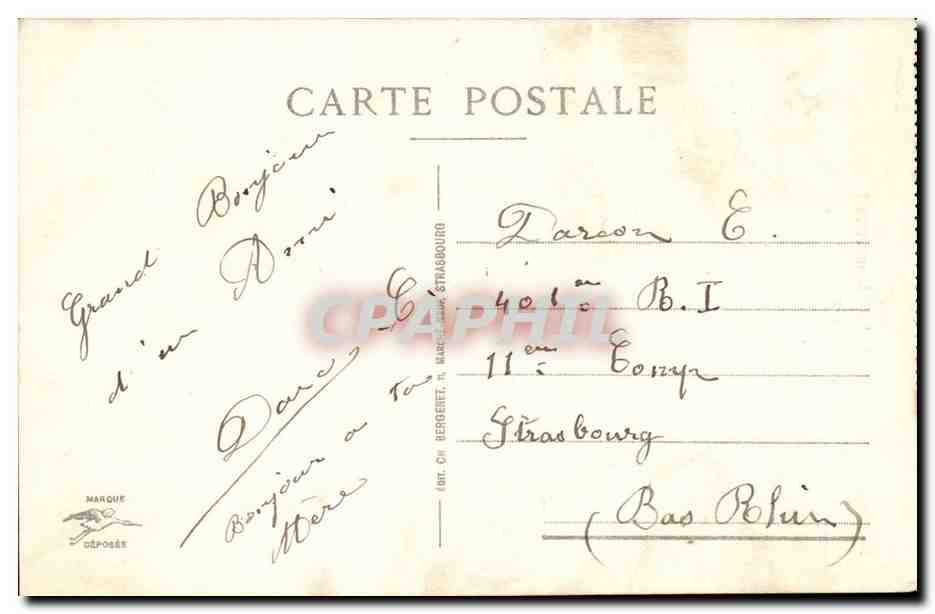 CARTE POSTALE
Grand Bonjour
d'un Ami
Darc E
Bonjour a ta
Mère
ÉDIT. CH BERGERET, 11, MARCHÉ NEUF, STRASBOURG
Darcon E.
401ème R.I
11ème Comp
Strasbourg
(Bas Rhin)
MARQUE
DÉPOSÉE
CPAPHIL